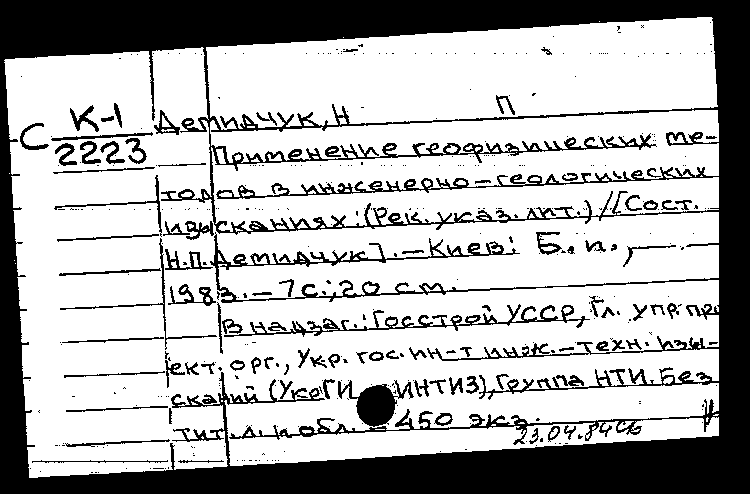 С К-1 Демидчук, Н П
2223 Применение геофизических ме-
тодов в инженерно-геологических
изысканиях: (Рек. указ. лит.) / [Сост.
Н.П. Демидчук]. — Киев: Б. и.,
1983. — 7 с.; 20 см.
В надзаг.: Госстрой УССР, Гл. упр. про
ект. орг., Укр. гос. ин-т инж.-техн. изы-
сканий (УкрГИ ИНТИЗ), Группа НТИ. Без
тит. л. и обл. — 450 экз.
23.04.84